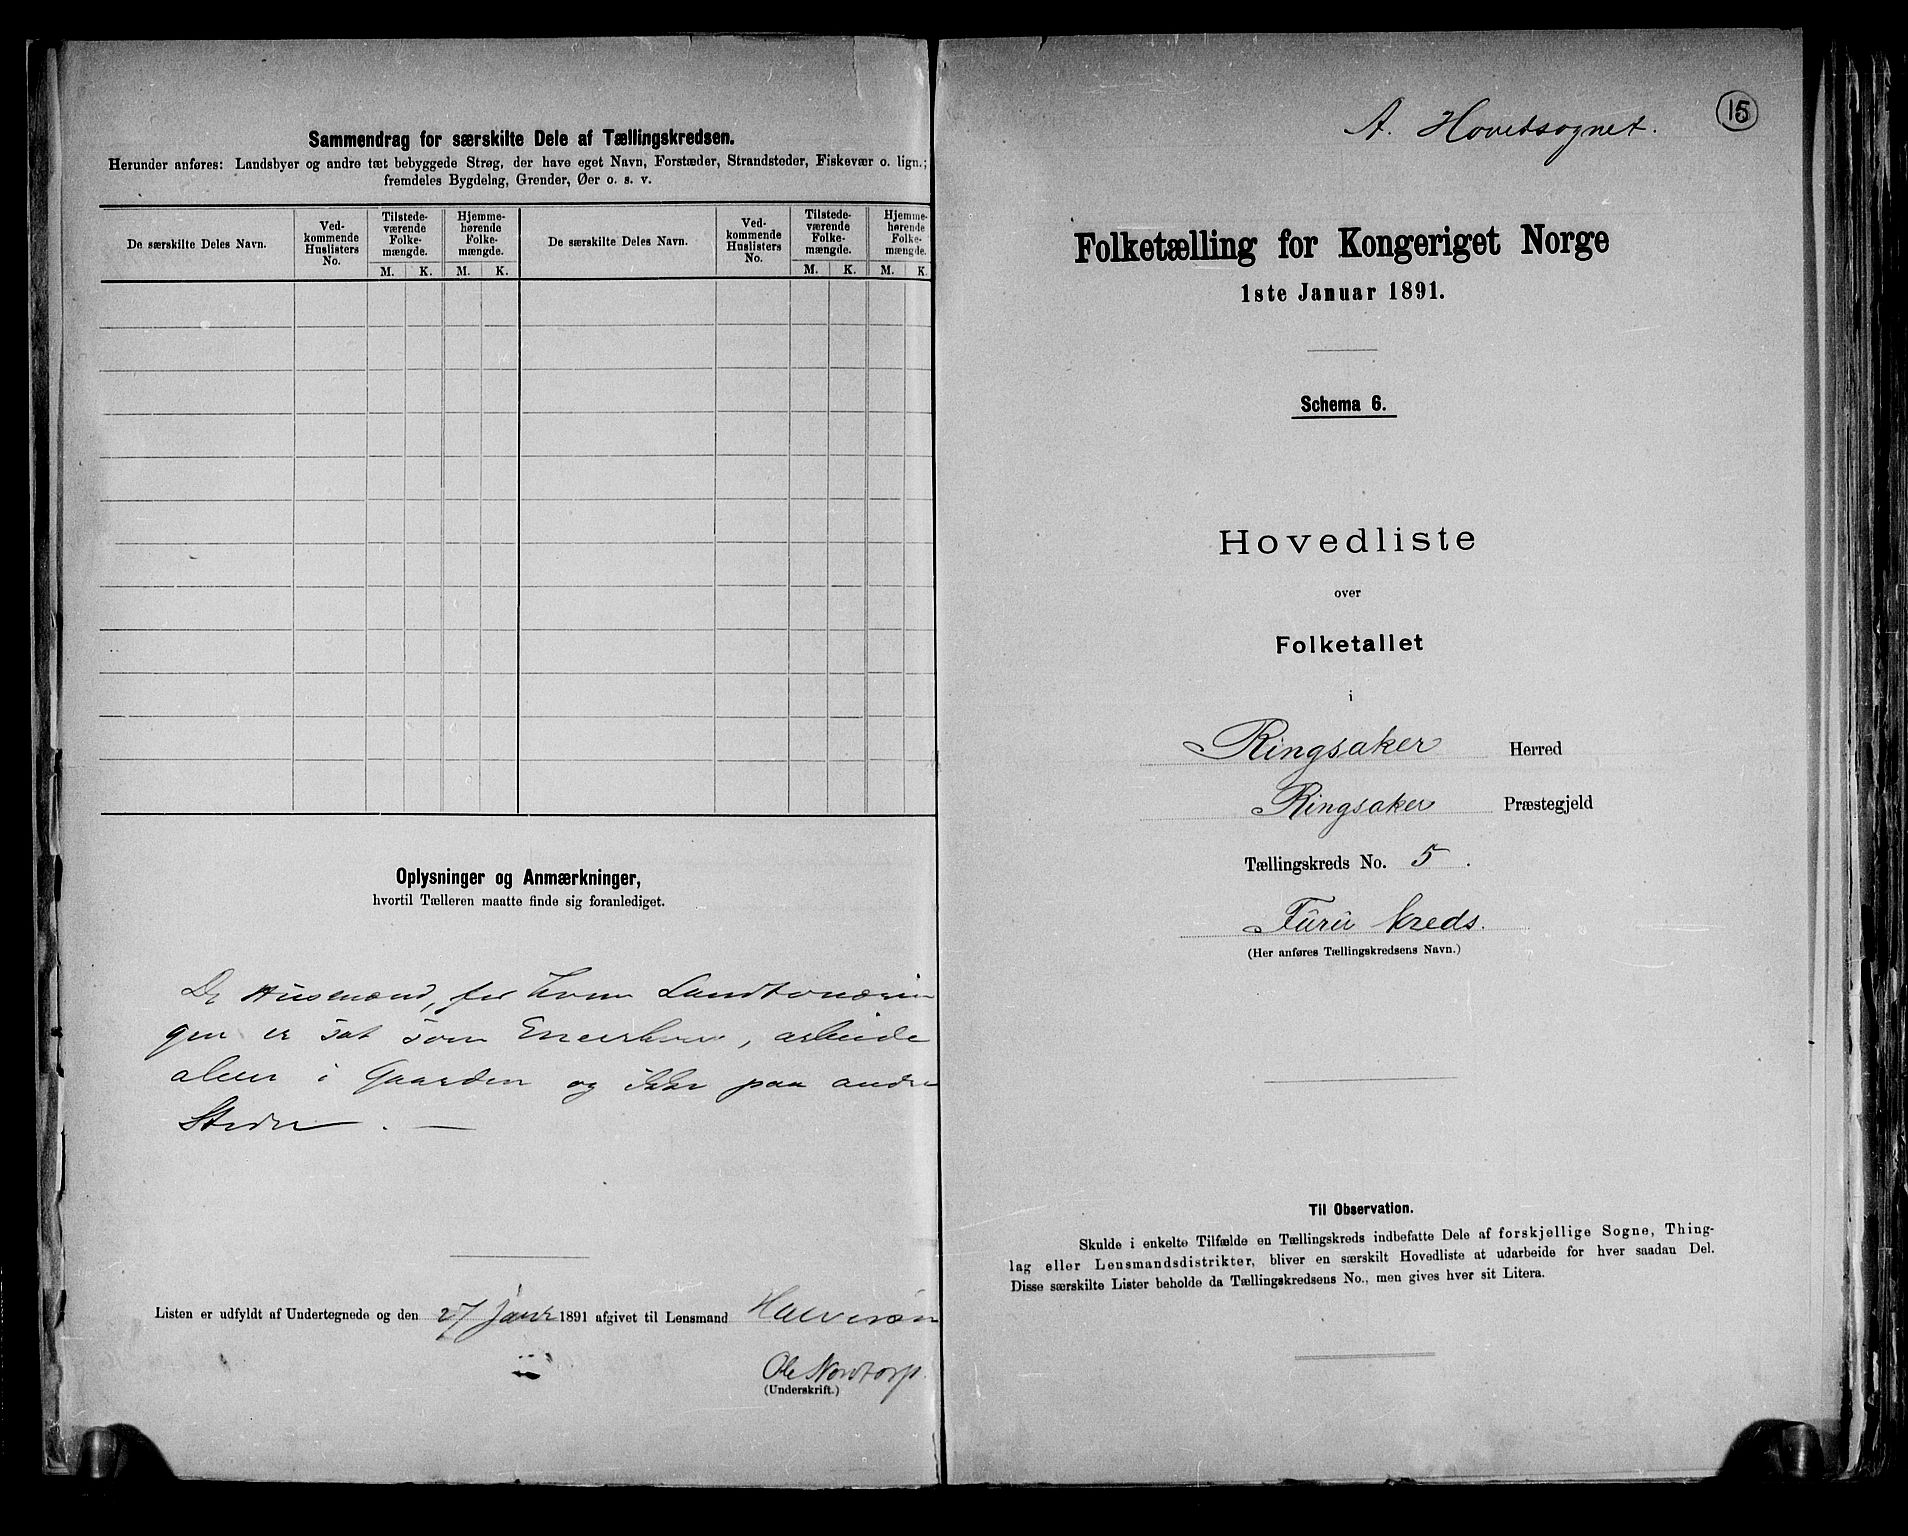 Sammendrag for særskilte Dele af Tællingskredsen.
Herunder anføres: Landsbyer og andre tæt bebyggede Strøg, der have eget Navn, Forstæder, Strandsteder, Fiskevær o. lign.;
fremdeles Bygdelag, Grender, Øer o. s. v.
De særskilte Deles Navn.
Ved-
kommende
Huslisters
No.
Tilstede-
værende
Folke-
mængde.
Hjemme-
hørende
Folke-
mængde.
M. K. M. K.
De særskilte Deles Navn.
Ved-
kommende
Huslisters
No.
Tilstede-
værende
Folke-
mængde.
Hjemme-
hørende
Folke-
mængde.
M. K. M. K.
Oplysninger og Anmærkninger,
hvortil Tælleren maatte finde sig foranlediget.
De Husmænd, for hvem
gen er sat som, arbeide
alene i Gaarden og ikke paa andre
Steder. —
Listen er udfyldt af Undertegnede og den 27 Janr 1891 afgivet til Lensmand
Ole Nordtorp.
(Underskrift.)
A. Hovedsognet.
15
Folketælling for Kongeriget Norge
1ste Januar 1891.
Schema 6.
Hovedliste
over
Folketallet
i
Ringsaker Herred
Ringsaker Præstegjeld
Tællingskreds No. 5.
Furu kreds.
(Her anføres Tællingskredsens Navn.)
Til Observation.
Skulde i enkelte Tilfælde en Tællingskreds indbefatte Dele af forskjellige Sogne, Thing-
lag eller Lensmandsdistrikter, bliver en særskilt Hovedliste at udarbeide for hver saadan Del.
Disse særskilte Lister beholde da Tællingskredsens No., men gives hver sit Litera.